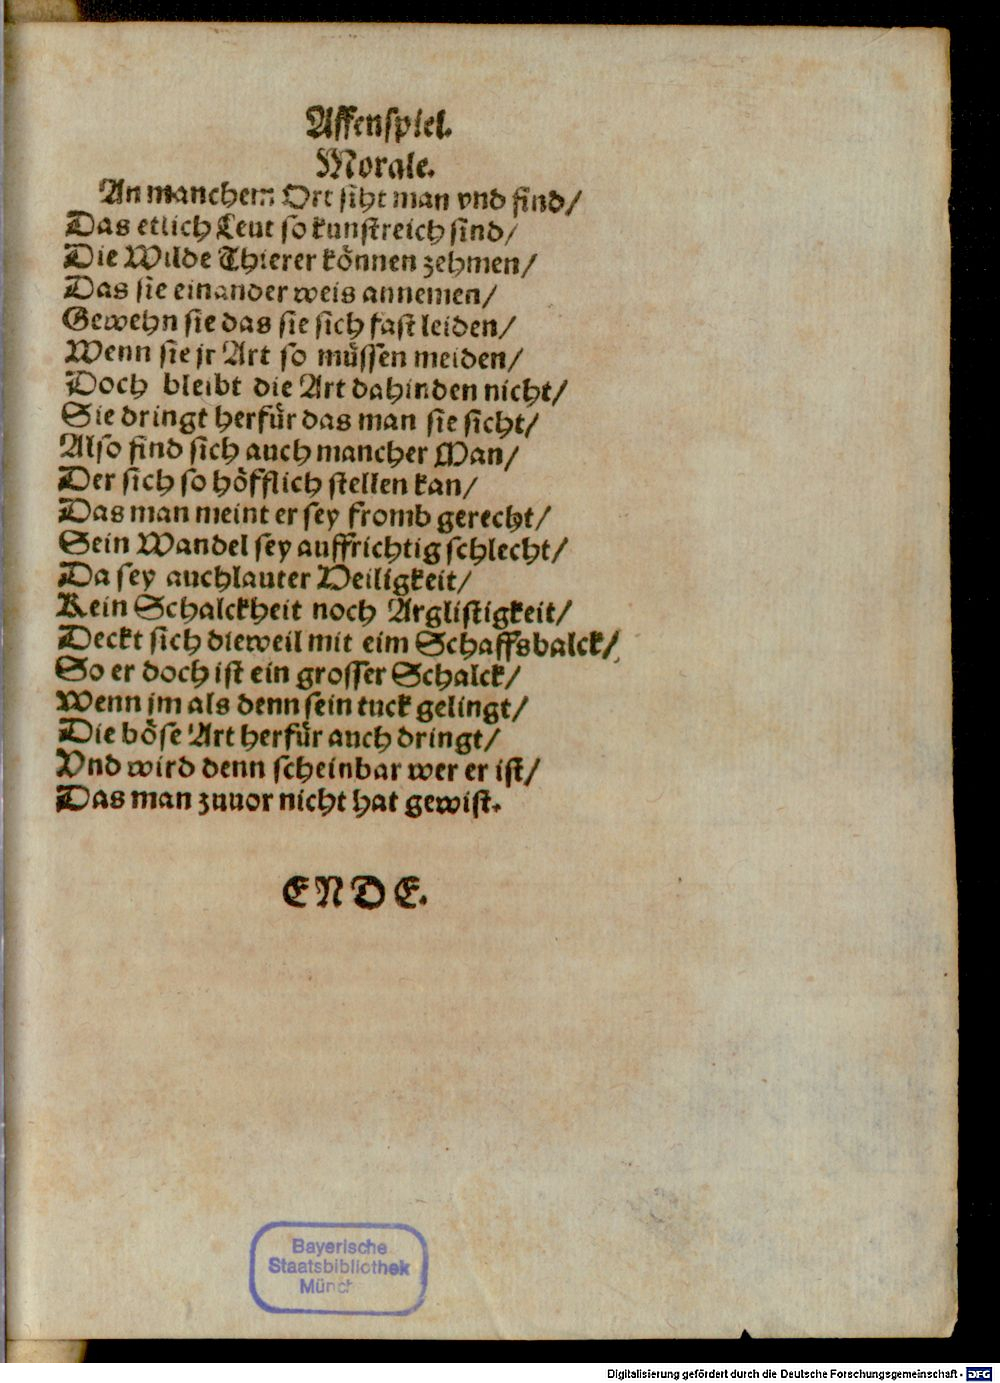 Affenspiel.
Morale.
An manchem Ort siht man vnd find/
Das etlich Leut so kunstreich sind/
Die Wilde Thierer können zehmen/
Das sie einander weis annemen/
Gewehn sie das sie sich fast leiden/
Wenn sie jr Art so müssen meiden/
Doch bleibt die Art dahinden nicht/
Sie dringt herfür das man sie sicht/
Also find sich auch mancher Man/
Der sich so höfflich stellen kan/
Das man meint er sey fromb gerecht/
Sein Wandel sey auffrichtig schlecht/
Da sey auchlauter Heiligkeit/
Kein Schalckheit noch Arglistigkeit/
Deckt sich dieweil mit eim Schaffsbalck/
So er doch ist ein grosser Schalck/
Wenn jm als denn sein tuck gelingt/
Die böse Art herfür auch dringt/
Vnd wird denn scheinbar wer er ist/
Das man zuuor nicht hat gewist.
ENDE.
Bayerische
Staatsbibliothek
Münch
Digitalisierung gefördert durch die Deutsche Forschungsgemeinschaft - DFG